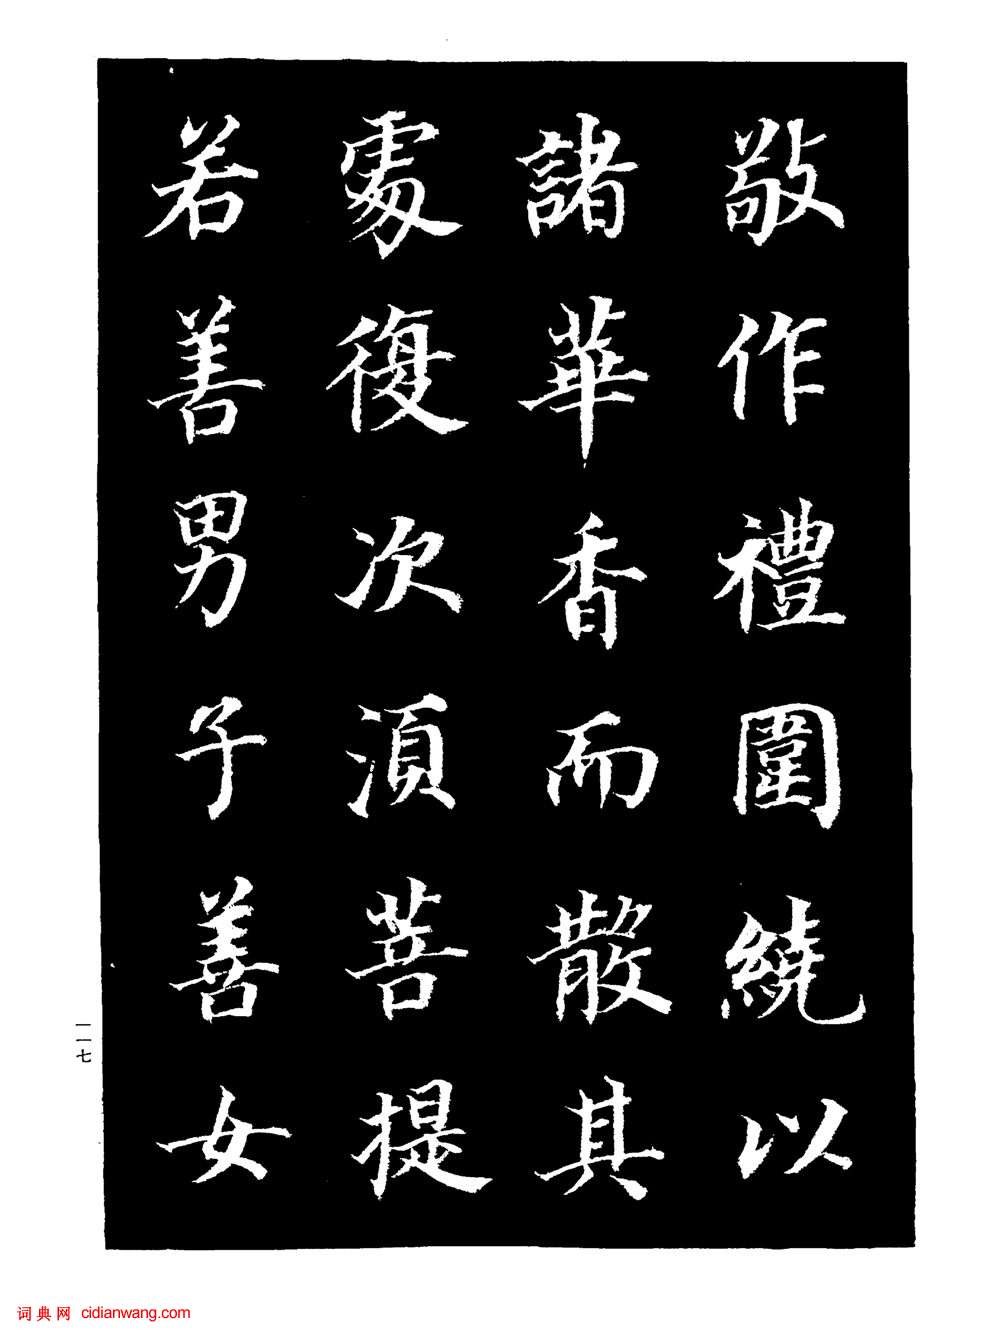 敬作禮圍繞以
諸華香而散其
處復次須菩提
若善男子善女
一一七
词典网 cidianwang.com